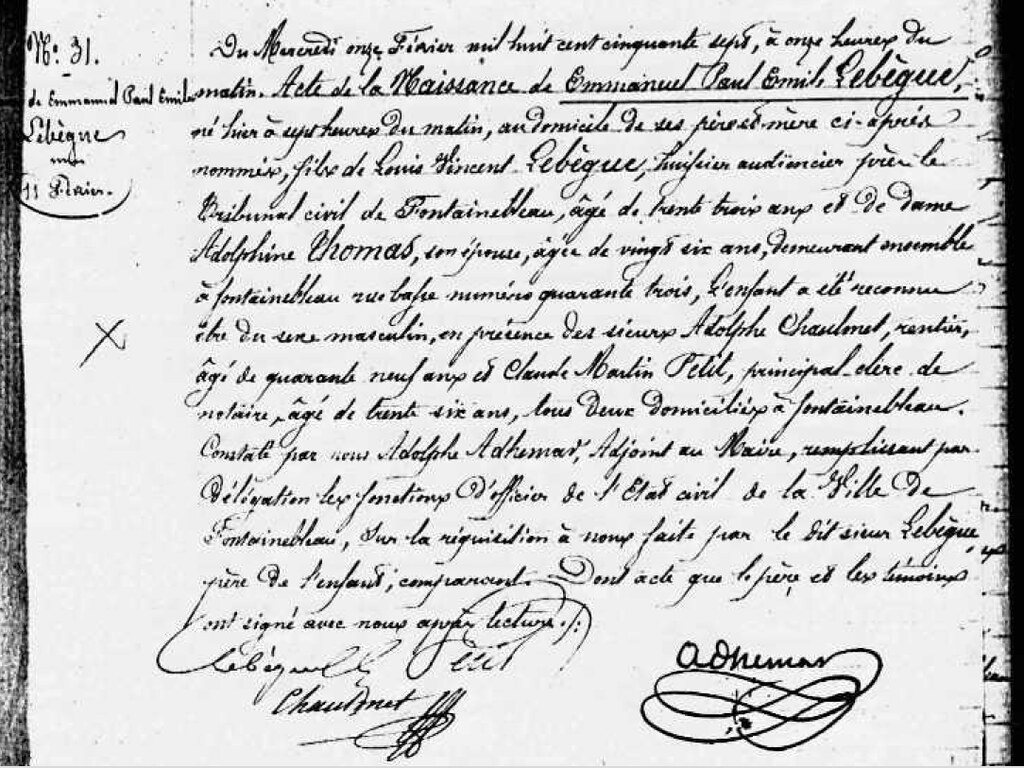 N.º 31.
de Emmanuel Paul Emile
Lebègue
11 Février.
Du Mercredi onze Février mil huit cent cinquante sept, à onze heures du
matin. Acte de la Naissance de Emmanuel Paul Emile Lebègue,
né hier à sept heures du matin, au domicile de ses père et mère ci-après
nommés, fils de Louis Vincent Lebègue, huissier audiencier près le
Tribunal civil de Fontainebleau, âgé de trente trois ans et de dame
Adolphine Thomas, son épouse, âgée de vingt six ans, demeurant ensemble
à fontainebleau rue basse numéro quarante trois, l'enfant a été reconnu
être du sexe masculin, en présence des sieurs Adolphe Chaulmet, rentier,
âgé de quarante neuf ans et Claude Martin Petit, principal clerc de
notaire, âgé de trente six ans, tous deux domiciliés à fontainebleau.
Constaté par nous Adolphe Adhemar, Adjoint au Maire, remplissant par
délégation les fonctions d'officier de l'Etat civil de la Ville de
Fontainebleau, sur la réquisition à nous faite par le dit sieur Lebègue,
père de l'enfant, comparant. Dont acte que le père et les témoins
ont signé avec nous après lecture./.
Lebègue Petit
Adhemar
Chaulmet